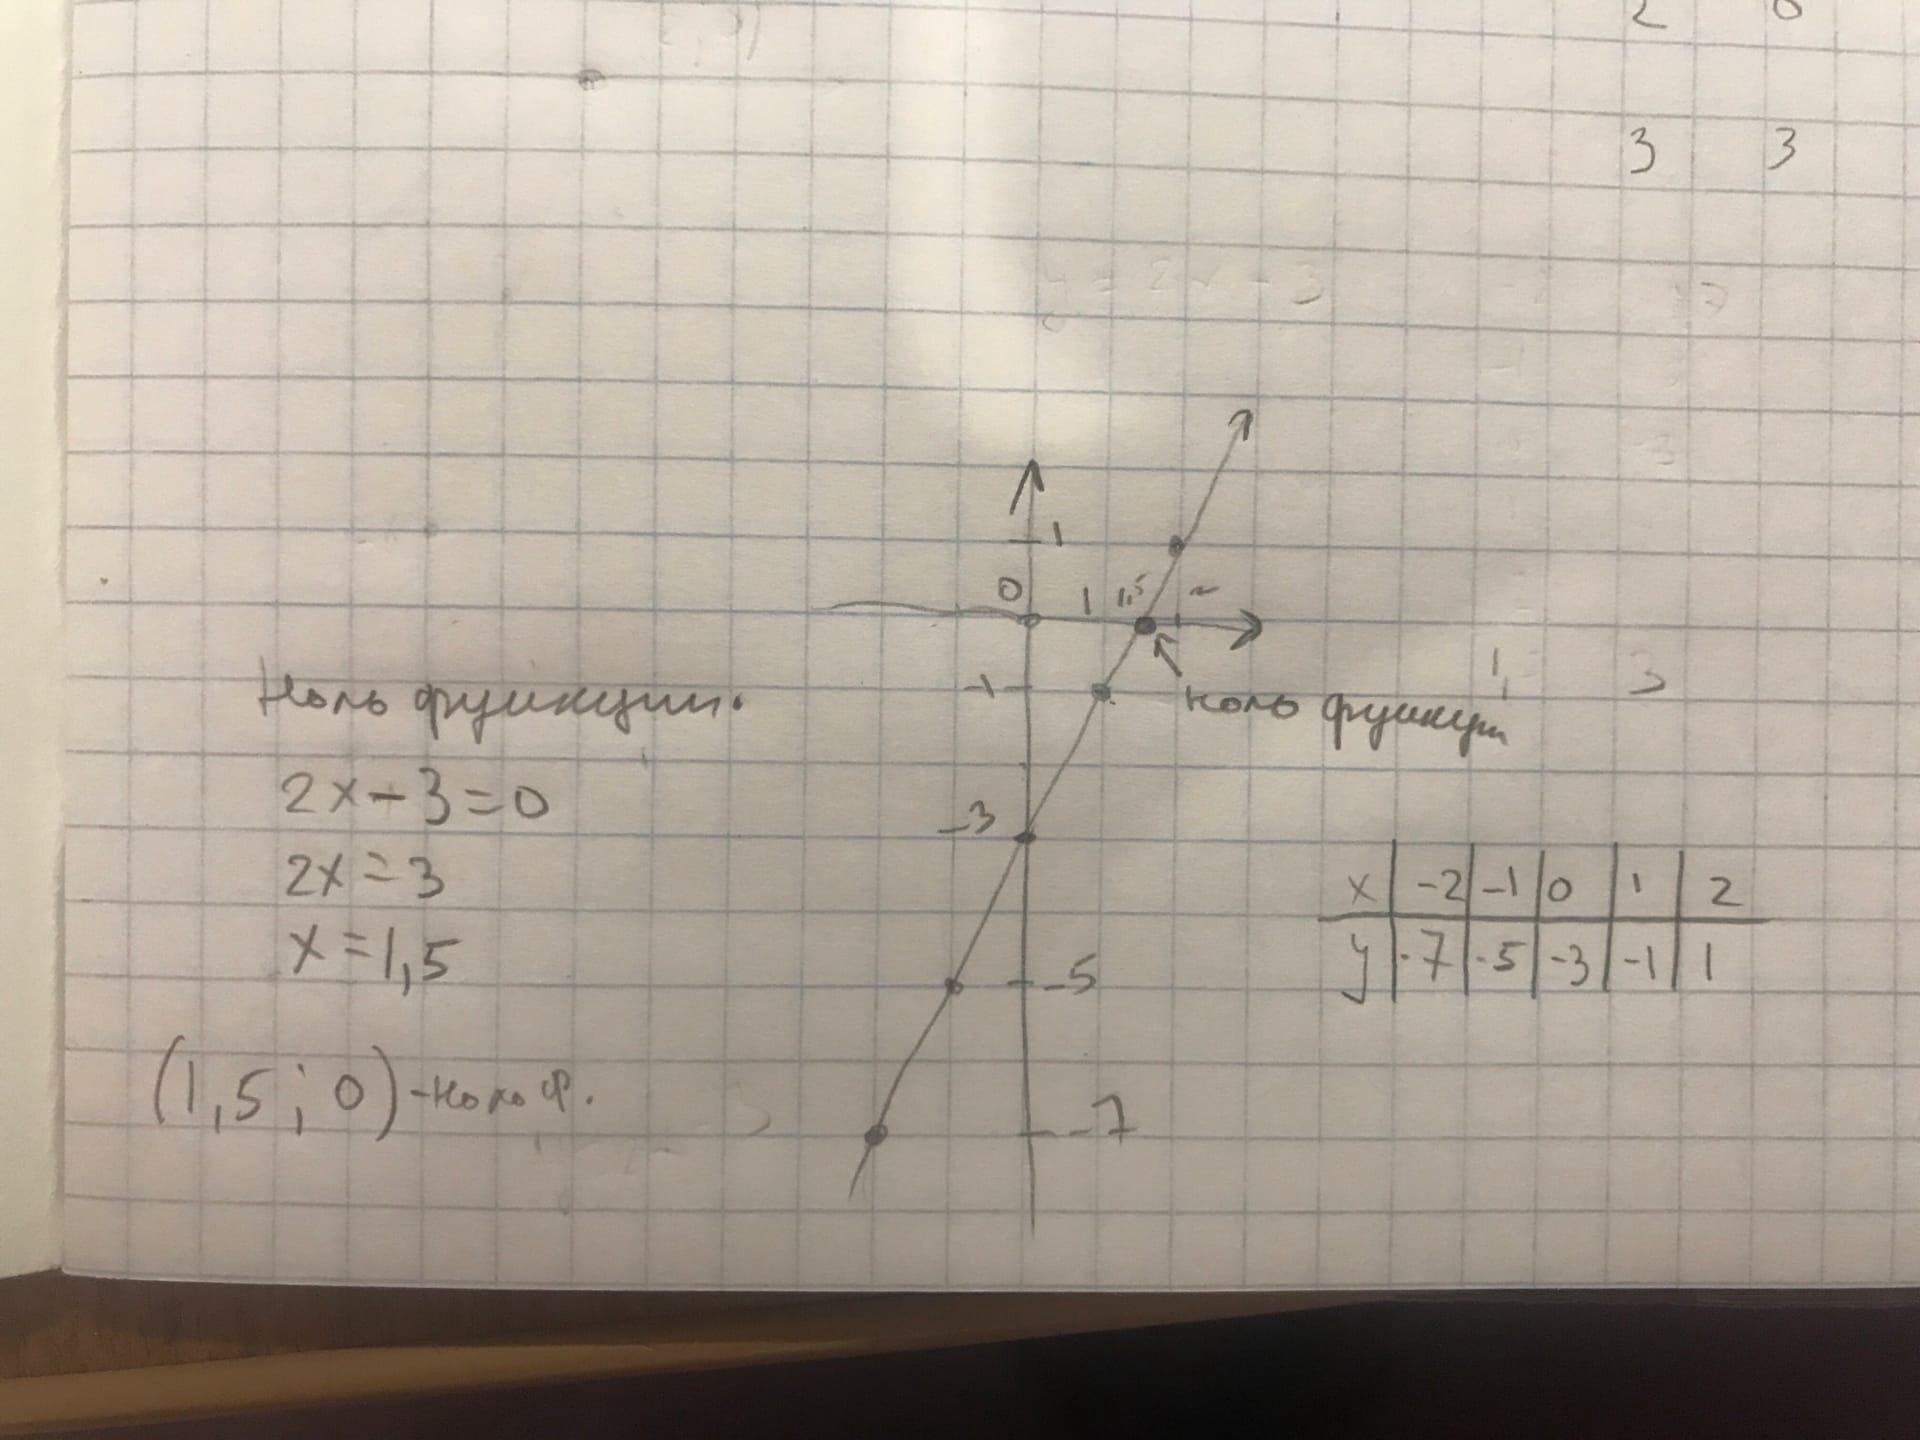 2 0
3 3
y = 2x - 3
1
0 1 1,5 2
-1
Ноль функции.
ноль функции
2x-3=0
-3
2x=3
x -2 -1 0 1 2
y -7 -5 -3 -1 1
x=1,5
-5
(1,5; 0) - ноль ф.
-7